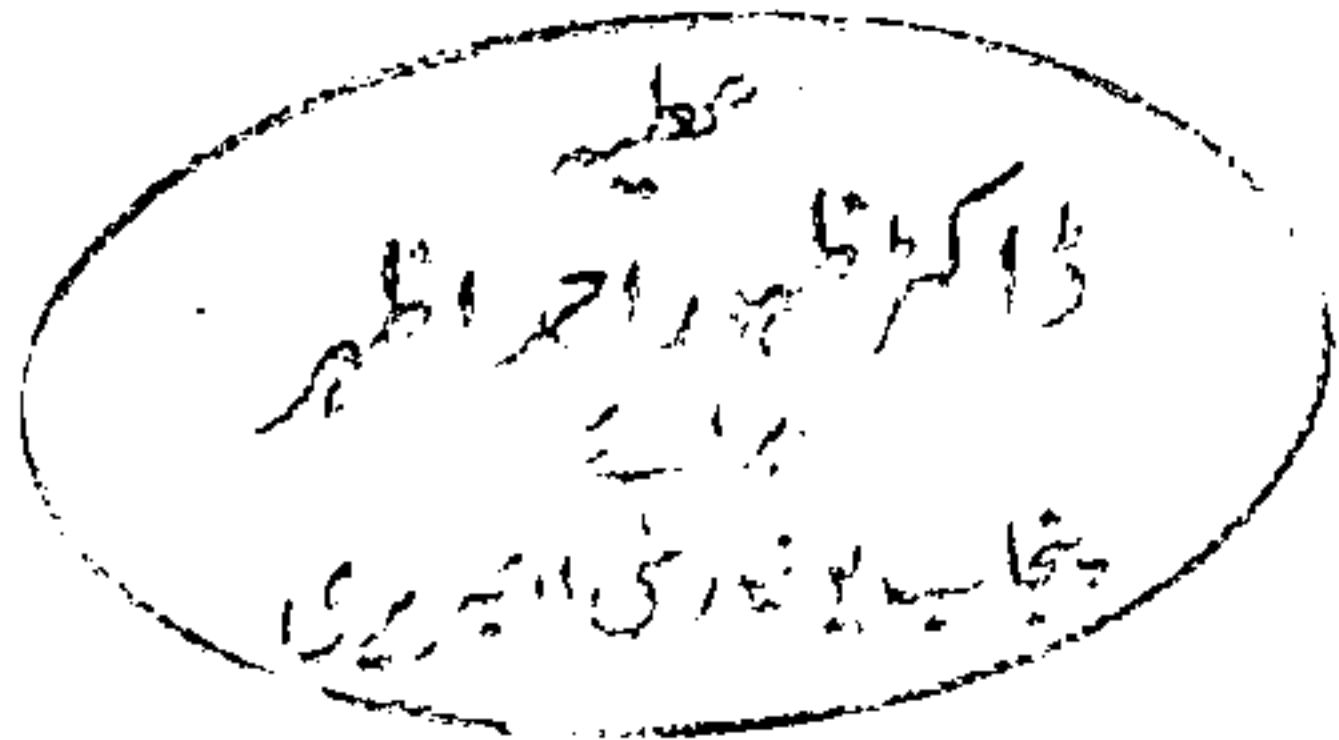 عطیہ
ڈاکٹر ظہور احمد اظہر
برائے
پنجاب یونیورسٹی لائبریری